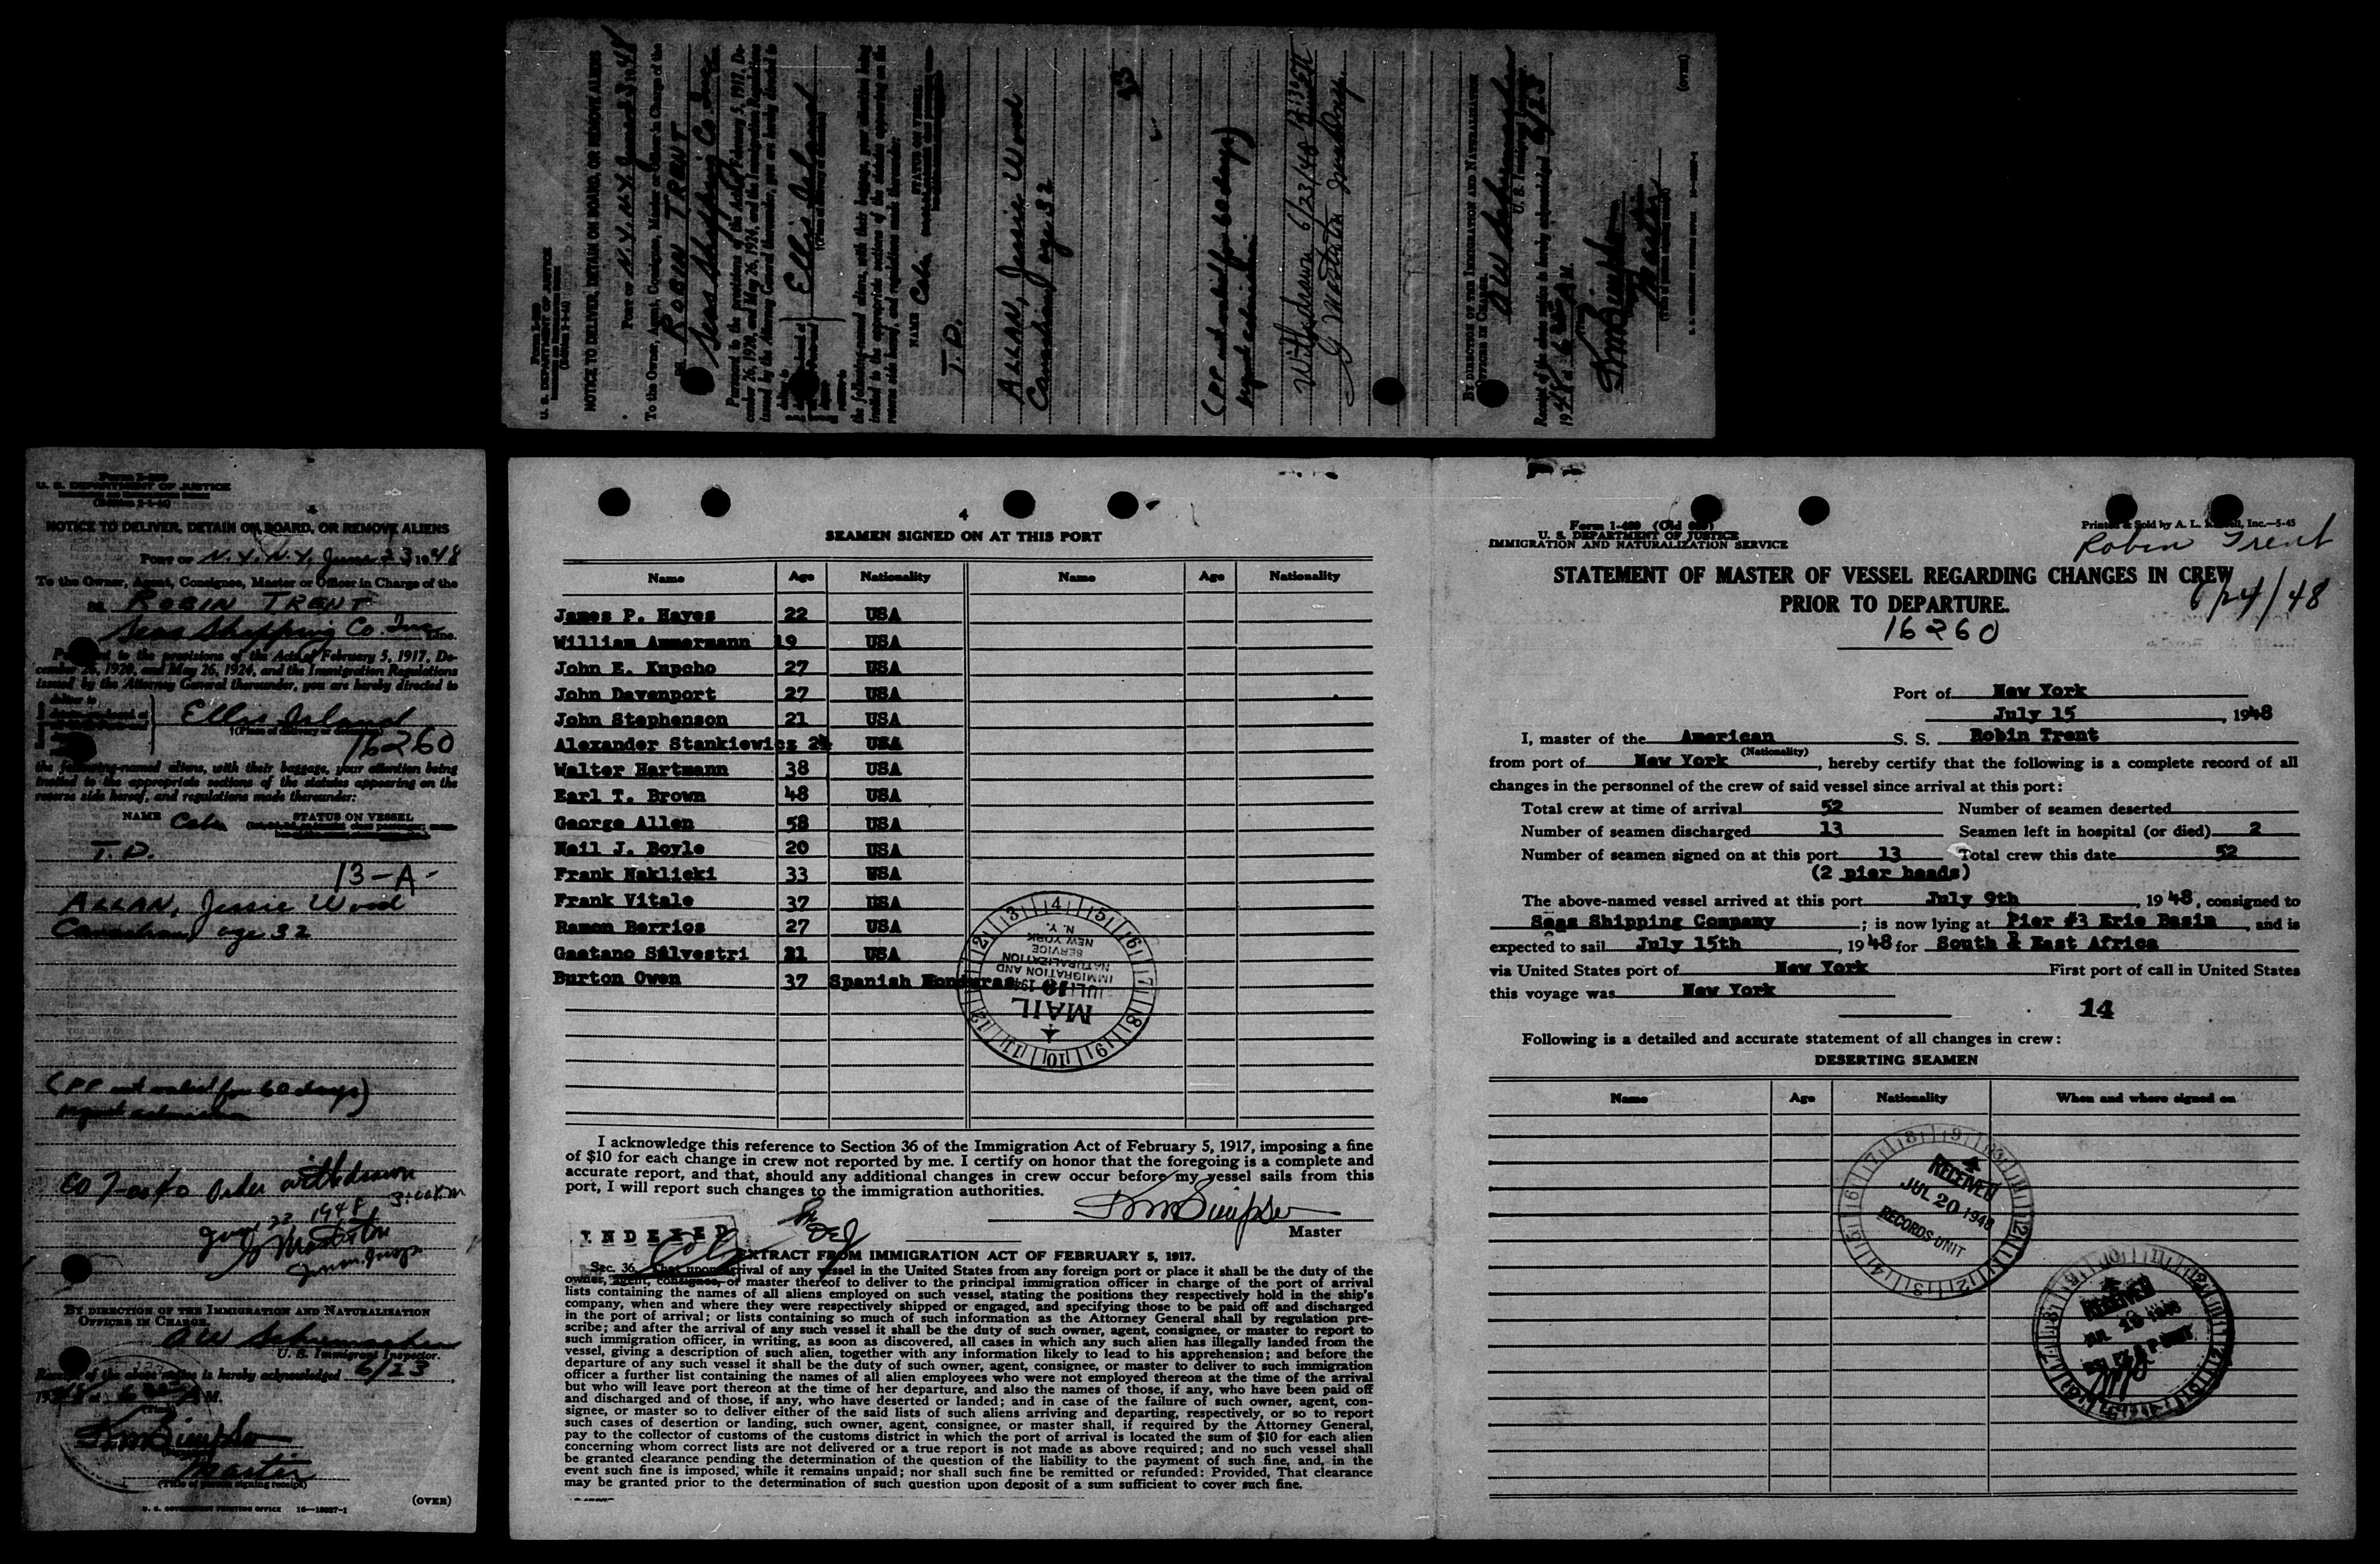 Form I-259
U. S. DEPARTMENT OF JUSTICE
NOTICE TO DELIVER, DETAIN ON BOARD, OR REMOVE ALIENS
PORT OF N.Y. N.Y. June 23 1948
To the Owner, Agent, Consignee, Master or Officer in Charge of the
SS. ROBIN TRENT
Seas Shipping Co Inc
Pursuant to the provisions of the Acts of February 5, 1917, De-
cember 26, 1920, and May 26, 1924, and the Immigration Regulations
issued by the Attorney General thereunder, you are hereby directed to
Ellis Island
the following-named aliens, with their baggage, your attention being
invited to the appropriate sections of the statutes appearing on the
reverse side hereof, and regulations made thereunder:
NAME Cabin STATUS ON VESSEL
T.D.
ALLAN, Jessie Wood
Canadian age 32
(PP not valid for 60 days)
Withdrawn 6/23/48
BY DIRECTION OF THE IMMIGRATION AND NATURALIZATION
OFFICER IN CHARGE.
U. S. Immigrant Inspector.
Receipt of the above notice is hereby acknowledged 6/23
1948 M.
Master
(Title of person signing receipt)
(OVER)
U. S. DEPARTMENT OF JUSTICE
NOTICE TO DELIVER, DETAIN ON BOARD, OR REMOVE ALIENS
PORT OF N.Y. N.Y. June 23 1948
To the Owner, Agent, Consignee, Master or Officer in Charge of the
SS. ROBIN TRENT
Seas Shipping Co. Inc Line.
Pursuant to the provisions of the Acts of February 5, 1917, De-
cember 26, 1920, and May 26, 1924, and the Immigration Regulations
issued by the Attorney General thereunder, you are hereby directed to
Ellis Island
(Place of delivery or detention)
16260
the following-named aliens, with their baggage, your attention being
invited to the appropriate sections of the statutes appearing on the
reverse side hereof, and regulations made thereunder:
NAME Cabin STATUS ON VESSEL
T.D.
13-A-
ALLAN, Jessie Wood
Canadian age 32
(PP not valid for 60 days)
Order withdrawn
June 23 1948
BY DIRECTION OF THE IMMIGRATION AND NATURALIZATION
OFFICER IN CHARGE.
U. S. Immigrant Inspector.
Receipt of the above notice is hereby acknowledged 6/23
M.
Master
(Title of person signing receipt)
(OVER)
U. S. GOVERNMENT PRINTING OFFICE
4
SEAMEN SIGNED ON AT THIS PORT
Name Age Nationality Name Age Nationality
James P. Hayes 22 USA
William Ammermann 19 USA
John E. Kupcho 27 USA
John Davenport 27 USA
John Stephenson 21 USA
Alexander Stankiewicz 24 USA
Walter Hartmann 38 USA
Earl T. Brown 48 USA
George Allen 58 USA
Neil J. Boyle 20 USA
Frank Naklicki 33 USA
Frank Vitale 37 USA
Ramon Berrios 27 USA
Gaetano Silvestri 21 USA
Burton Owen 37 Spanish Honduras
IMMIGRATION AND NATURALIZATION SERVICE NEW YORK N. Y.
MAIL
I acknowledge this reference to Section 36 of the Immigration Act of February 5, 1917, imposing a fine
of $10 for each change in crew not reported by me. I certify on honor that the foregoing is a complete and
accurate report, and that, should any additional changes in crew occur before my vessel sails from this
port, I will report such changes to the immigration authorities.
Master
INDEXED
EXTRACT FROM IMMIGRATION ACT OF FEBRUARY 5, 1917.
Sec. 36. That upon arrival of any vessel in the United States from any foreign port or place it shall be the duty of the
owner, agent, consignee, or master thereof to deliver to the principal immigration officer in charge of the port of arrival
lists containing the names of all aliens employed on such vessel, stating the positions they respectively hold in the ship's
company, when and where they were respectively shipped or engaged, and specifying those to be paid off and discharged
in the port of arrival; or lists containing so much of such information as the Attorney General shall by regulation pre-
scribe; and after the arrival of any such vessel it shall be the duty of such owner, agent, consignee, or master to report to
such immigration officer, in writing, as soon as discovered, all cases in which any such alien has illegally landed from the
vessel, giving a description of such alien, together with any information likely to lead to his apprehension; and before the
departure of any such vessel it shall be the duty of such owner, agent, consignee, or master to deliver to such immigration
officer a further list containing the names of all alien employees who were not employed thereon at the time of the arrival
but who will leave port thereon at the time of her departure, and also the names of those, if any, who have been paid off
and discharged and of those, if any, who have deserted or landed; and in case of the failure of such owner, agent, con-
signee, or master so to deliver either of the said lists of such aliens arriving and departing, respectively, or so to report
such cases of desertion or landing, such owner, agent, consignee, or master shall, if required by the Attorney General,
pay to the collector of customs of the customs district in which the port of arrival is located the sum of $10 for each alien
concerning whom correct lists are not delivered or a true report is not made as above required; and no such vessel shall
be granted clearance pending the determination of the question of the liability to the payment of such fine, and, in the
event such fine is imposed, while it remains unpaid; nor shall such fine be remitted or refunded: Provided, That clearance
may be granted prior to the determination of such question upon deposit of a sum sufficient to cover such fine.
Form I-489 (Old 689)
U. S. DEPARTMENT OF JUSTICE
IMMIGRATION AND NATURALIZATION SERVICE
Printed & Sold by A. L. Inc.—5-45
Robin Trent
STATEMENT OF MASTER OF VESSEL REGARDING CHANGES IN CREW
PRIOR TO DEPARTURE.
6/24/48
16260
Port of New York
July 15, 1948
I, master of the American S. S. Robin Trent
(Nationality)
from port of New York, hereby certify that the following is a complete record of all
changes in the personnel of the crew of said vessel since arrival at this port:
Total crew at time of arrival 52 Number of seamen deserted
Number of seamen discharged 13 Seamen left in hospital (or died) 2
Number of seamen signed on at this port 13 Total crew this date 52
(2 pier heads)
The above-named vessel arrived at this port July 9th, 1948, consigned to
Seas Shipping Company; is now lying at Pier #3 Erie Basin, and is
expected to sail July 15th, 1948 for South & East Africa
via United States port of New York First port of call in United States
this voyage was New York
14
Following is a detailed and accurate statement of all changes in crew:
DESERTING SEAMEN
Name Age Nationality When and where signed on
RECEIVED
JUL 20 1948
RECORDS UNIT
RECEIVED